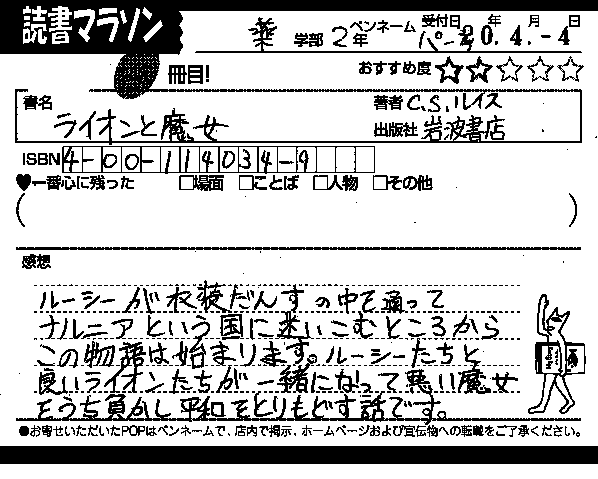 読書マラソン
薬 学部 2年 ペンネーム 受付日 年 月 日
0. 4. - 4
冊目! おすすめ度 ☆☆☆☆☆
書名 ライオンと魔女
著者 C.S.ルイス
出版社 岩波書店
ISBN 4-00-114034-9
♥一番心に残った □場面 □ことば □人物 □その他
( )
感想
ルーシーが衣装だんすの中を通って
ナルニアという国に迷いこむところから
この物語は始まります。ルーシーたちと
良いライオンたちが一緒になって悪い魔女
をうち負かし平和をとりもどす話です。
●お寄せいただいたPOPはペンネームで、店内で掲示、ホームページおよび宣伝物への転載をご了承ください。